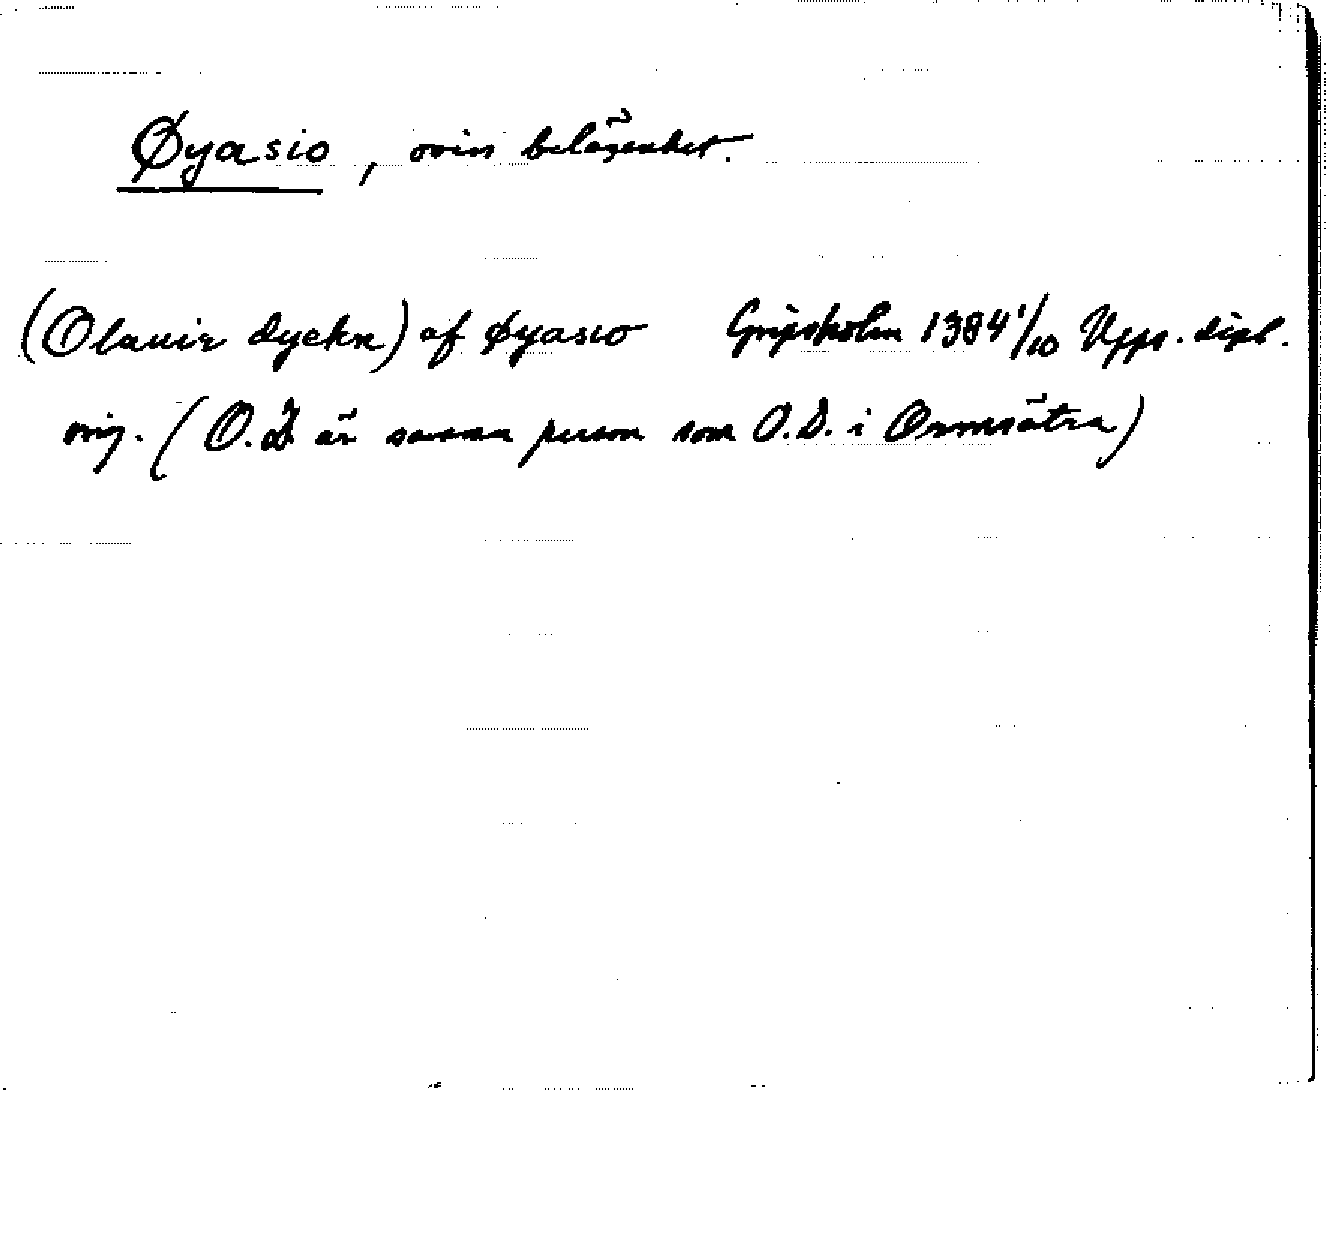 Øyasio, oviss belägenhet.
(Olauir dyekn) af øyasio Gripsholm 1384 1/10 Upps. dipl.
orig. (O.D. är samma person som O.D. i Ormsätra)